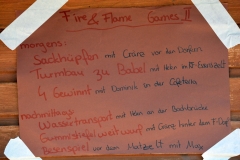 Fire & Flame Games II
morgens:
Sackhüpfen mit vor den Dörfern
Turmbau zu Babel mit vorm
4 Gewinnt mit Dominik in der Cafeteria
nachmittags:
Wassertransport mit an der Bachbrücke
Gummistiefelweitwurf mit hinter dem F-Dorf
Besenspiel vor dem Matze Ift mit